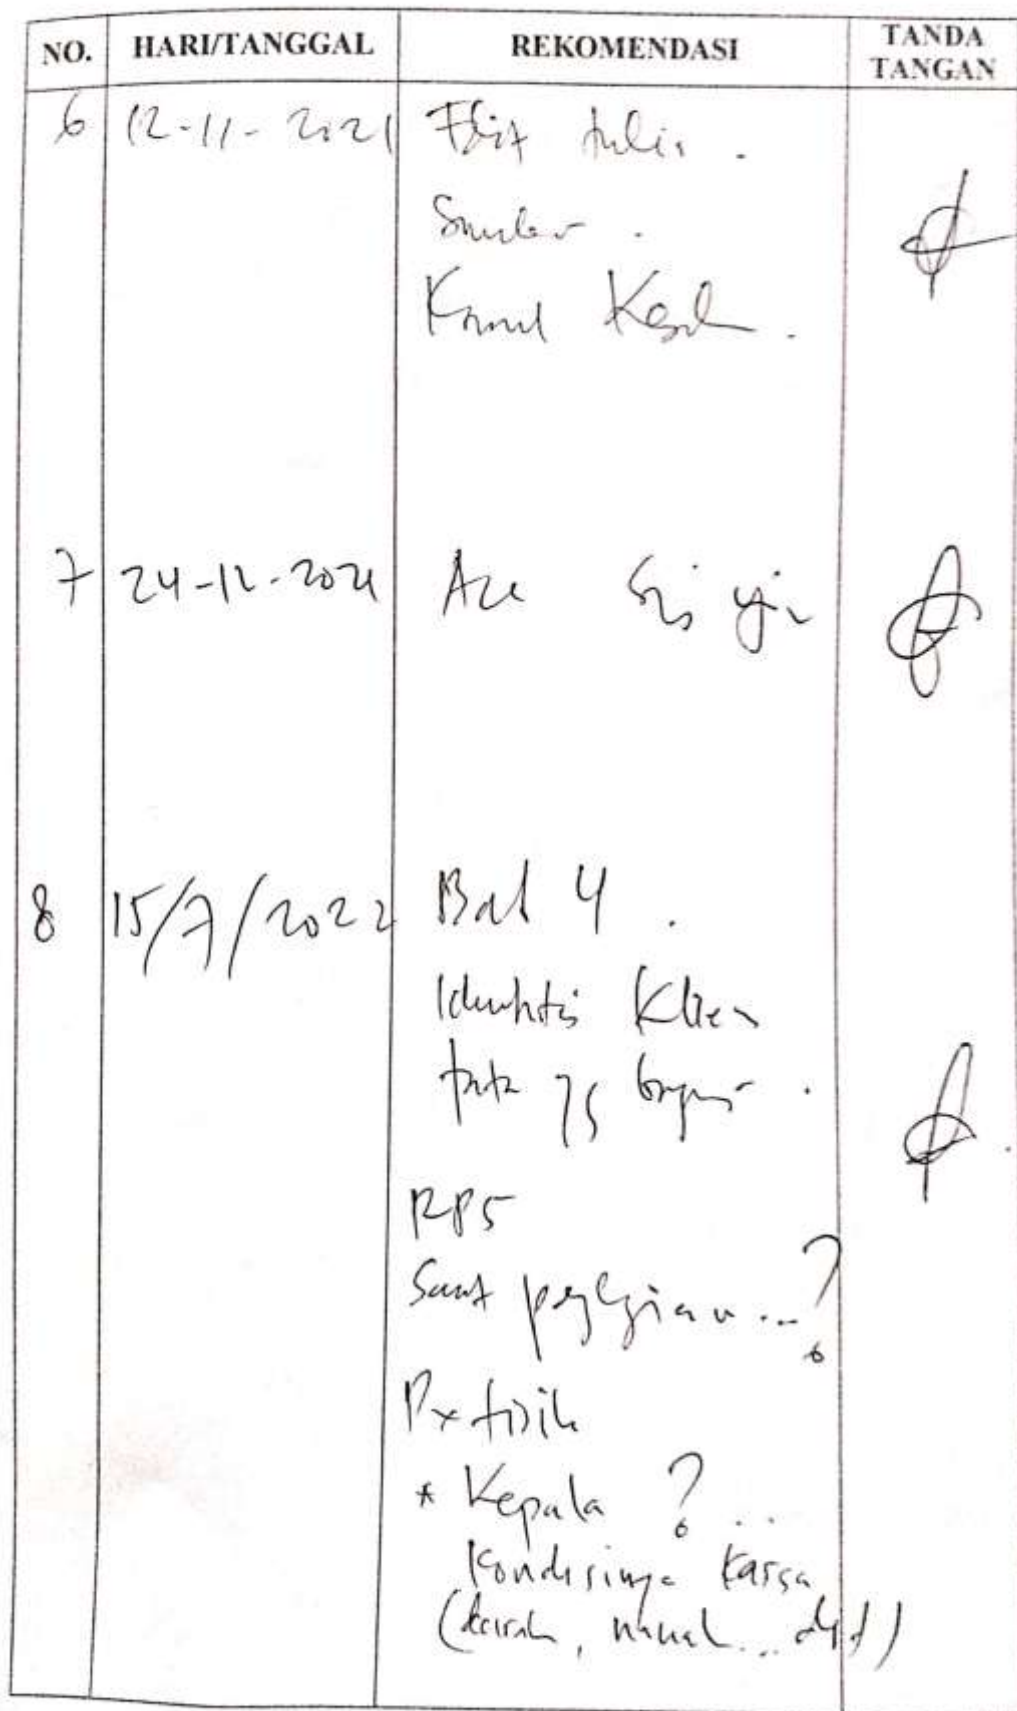 NO. HARI/TANGGAL REKOMENDASI TANDA TANGAN
6 12-11-2021 Edit tulis.
Sumber.
7 24-12-2021 Acc
8 15/7/2022 Bab 4.
Identitas Klien
tata yg
RPS
Saat pengkajian...?
Px fisik
* Kepala ?..
Kondisinya kassa
(darah, nanah... dst)